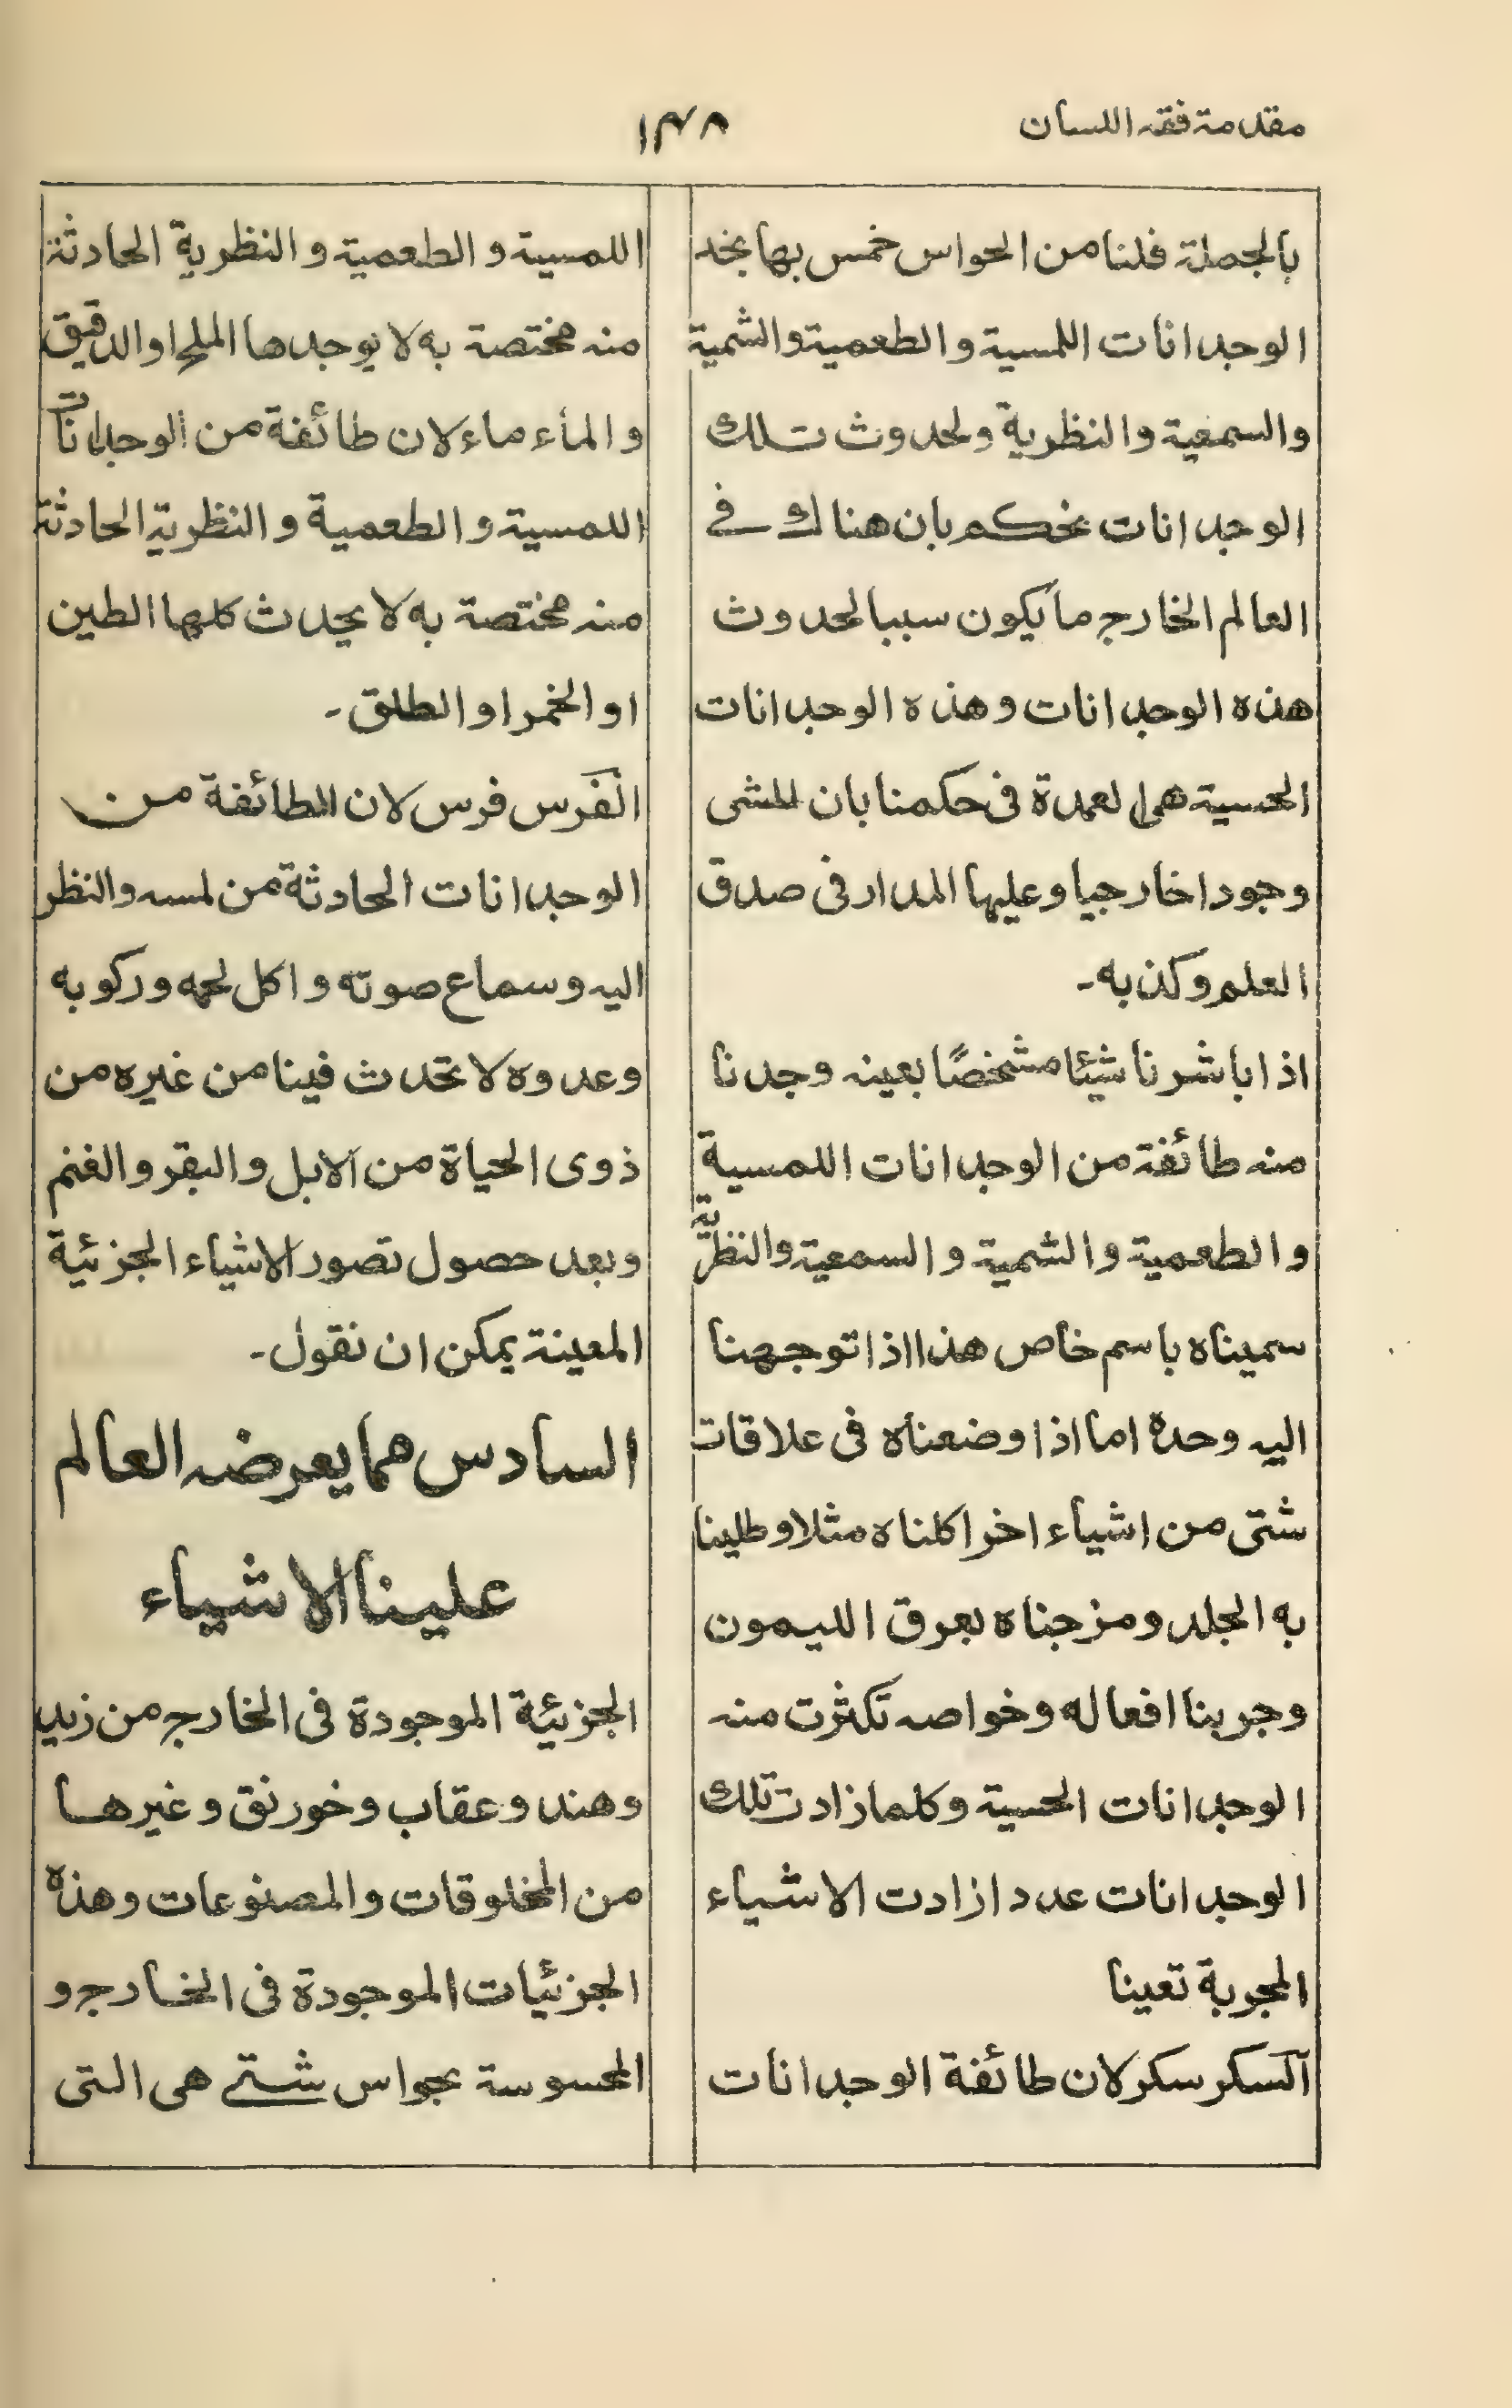 مقدمة فقه اللسان
١٤٨
بالجملة فلنا من الحواس خمس بها نجد
الوجدانات اللمسية والطعمية والشمية
والسمعية والنظرية ولحدوث تلك
الوجدانات نحكم بان هناك في
العالم الخارج ما يكون سببا لحدوث
هذه الوجدانات وهذه الوجدانات
الحسية هى العمدة فى حكمنا بان للشى
وجودا خارجيا وعليها المدار فى صدق
العلم وكذبه۔
اذا باشرنا شيئا مشخصًا بعينه وجدنا
منه طائفة من الوجدانات اللمسية
والطعمية والشمية والسمعية والنظريّة
سميناه باسم خاص هذا اذا توجهنا
اليه وحده اما اذا وضعناه فى علاقات
شتى من اشياء اخر اكلناه مثلا وطلينا
به الجلد ومزجناه بعرق الليمون
وجربنا افعاله وخواصه تكثرت منه
الوجدانات الحسية وكلما زادت تلك
الوجدانات عددا زادت الاشياء
المجربة تعينا
آلسكر سكر لان طائفة الوجدانات
اللمسية والطعمية والنظرية الحادثة
منه مختصة به لا يوجدها الملح او الدقيق
والماء ماء لان طائفة من الوجدانات
اللمسية والطعمية والنظرية الحادثة
منه مختصة به لا يحدث كلها الطين
او الخمر او الطلق۔
الفرس فرس لان الطائفة من
الوجدانات الحادثة من لمسه والنظر
اليه وسماع صوته واكل لحمه وركوبه
وعدوه لا تحدث فينا من غيره من
ذوى الحياة من الابل والبقر والغنم
وبعد حصول تصور الاشياء الجزئية
المعينة يمكن ان نقول۔
السادس مما يعرضه العالم
علينا الاشياء
الجزئية الموجودة فى الخارج من زيد
وهند وعقاب وخورنق وغيرها
من المخلوقات والمصنوعات وهذه
الجزئيات الموجودة فى الخارج و
المحسوسة بحواس شتے هى التى